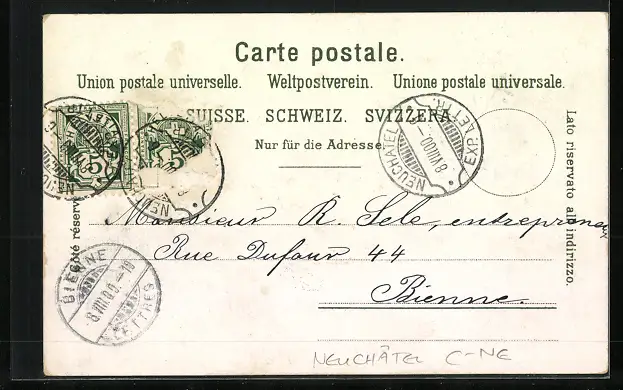 Carte postale.
Union postale universelle. Weltpostverein. Unione postale universale.
SUISSE. SCHWEIZ. SVIZZERA.
Nur für die Adresse.
Côté réservé
Lato riservato all' indirizzo.
5
5
NEUCHATEL
8 VIII 00
EXP. LETTR.
Monsieur R. Sele, entrepreneur
Rue Dufour 44
Bienne.
BIENNE
8 VIII 00
LETTRES
NEUCHÂTEL C-NE